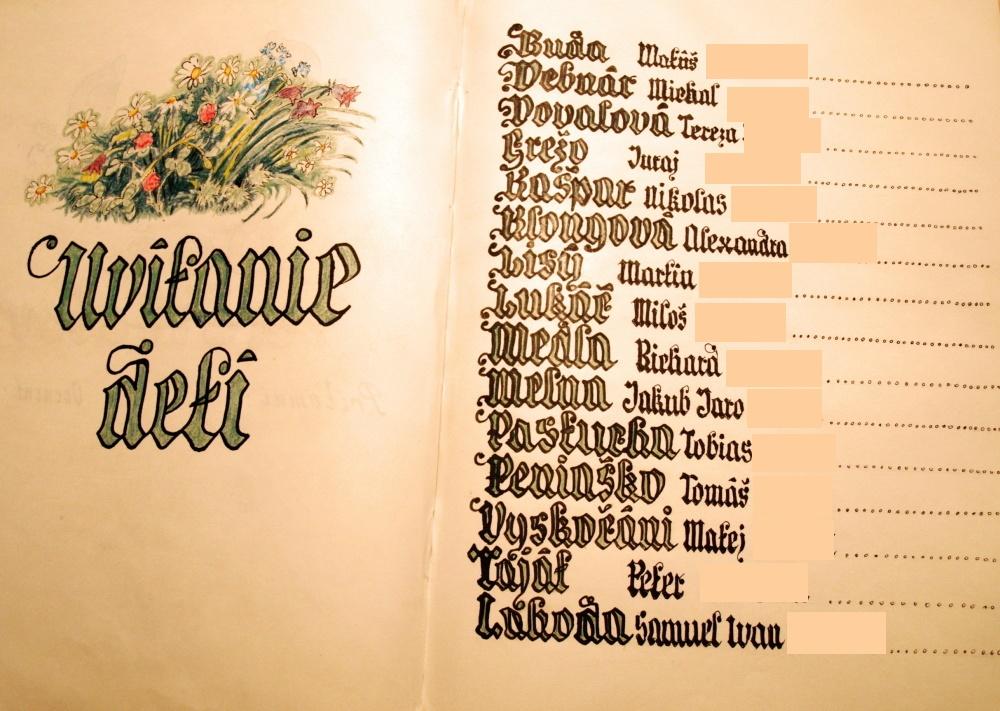 Uvítanie
detí
Buda Matúš
Debnár Michal
Dovalová Tereza
Grežo Juraj
Kašpar Nikolas
Klongová Alexandra
Lisý Martin
Lukáč Miloš
Medla Richard
Melna Jakub Jaro
Paskucha Tobias
Peniaško Tomáš
Vyskočáni Matej
Taját Peter
Samuel Ivan